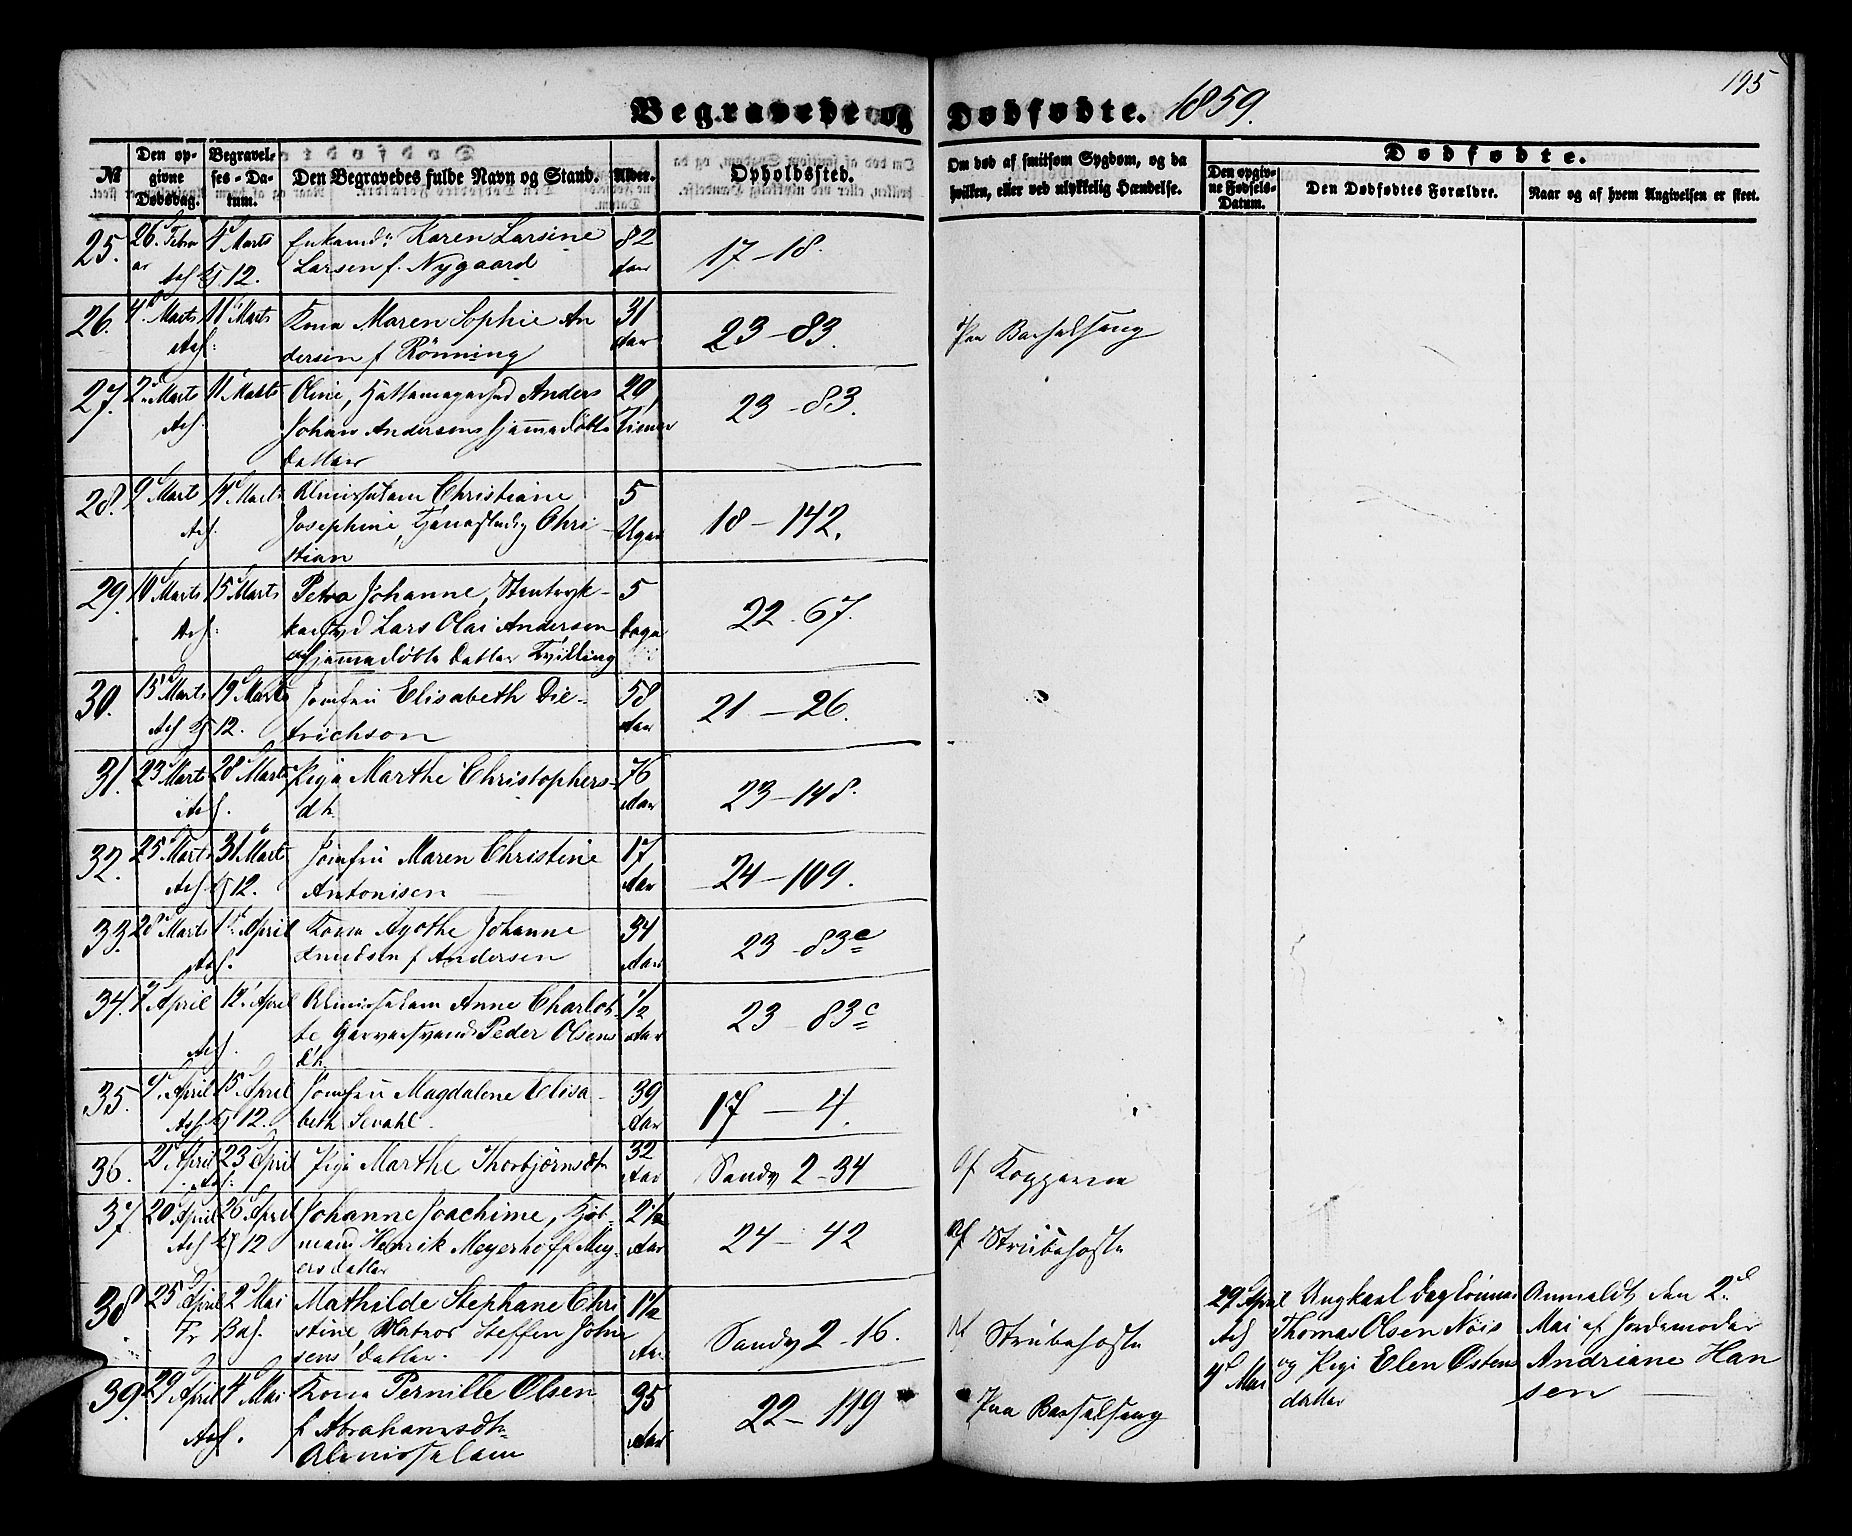 195
Begravede og Dødfødte. 1859.
№
Den opgivne Dødsdag.
Begravelses-Datum.
Den Begravedes fulde Navn og Stand.
Alder.
Opholdssted.
Om død af smitsom Sygdom, og da hvilken, eller ved ulykkelig Hændelse.
Dødfødte.
Den opgivne Fødsels-Datum.
Den Dødfødtes Forældre.
Naar og af hvem Angivelsen er skeet.
25. 26. Febru 4 Marts Enkemd: Karen Larsine 82
ar 12. Larsen f. Nygaard Aar 17-18.
26. 4. Marts 11 Marts Kona Maren Sophie An 31
dersen f Rönning Aar 23-83. Paa Barselseng
27. 2. Marts 11 Marts Oline, Anders 20
Johan Andersens Timer 23-83.
Datter
28. 9 Marts 14 Marts Christiane 5
Josephine, Chri- Uger 18-142.
stian
29. 10 Marts 15 Marts Petra Johanne, 5
Lars Olai Andersen Dage 22-67.
Datter Tvilling
30. 15 Marts 19 Marts Jomfru Elisabeth Die- 58
12. trichson Aar 21-26.
31. 23 Marts 28 Marts Pige Marthe Christophers- 76
dtr. Aar 23-148.
32. 25 Marts 31 Marts Jomfru Maren Christine 17
12. Antonisen Aar 24-109.
33. 28 Marts 1 April Kona Agothe Johanne 34
Knudsen f Andersen Aar 23-83c
34. 7 April 12. April Anne Charlot- 1/2
te Peder Olsens Aar 23-83c
dtr.
35. 9. April 15 April Jomfru Magdalene Elisa- 39
12. beth Sevahl. Aar 17-4.
36. 21 April 23 April Pige Marthe Thorbjörnsdtr 32
Aar Sandv 2-34 Af Kopperne
37. 20 April 26 April Johanne Joachime, Kjöb- 2 1/2
12 mand Henrik Meyerhoff Mey- Aar 24-42 Af Strubehoste
ers datter
38. 25 April 2 Mai Mathilde Stephane Chri 1 1/2
stine, Matros Steffen John Aar Sandv 2-16. Af Strubehoste
sens Datter.
39. 29 April 4 Mai Kona Pernille Olsen 35
f Abrahamsdtr Aar 22-119 Paa Barselseng
29 April Ungkarl Daglönner Anmeldt den 2d
Thomas Olsen Nöis Mai af Jordemoder
4 Mai og Pige Elen Östens Andriane Han
datter sen